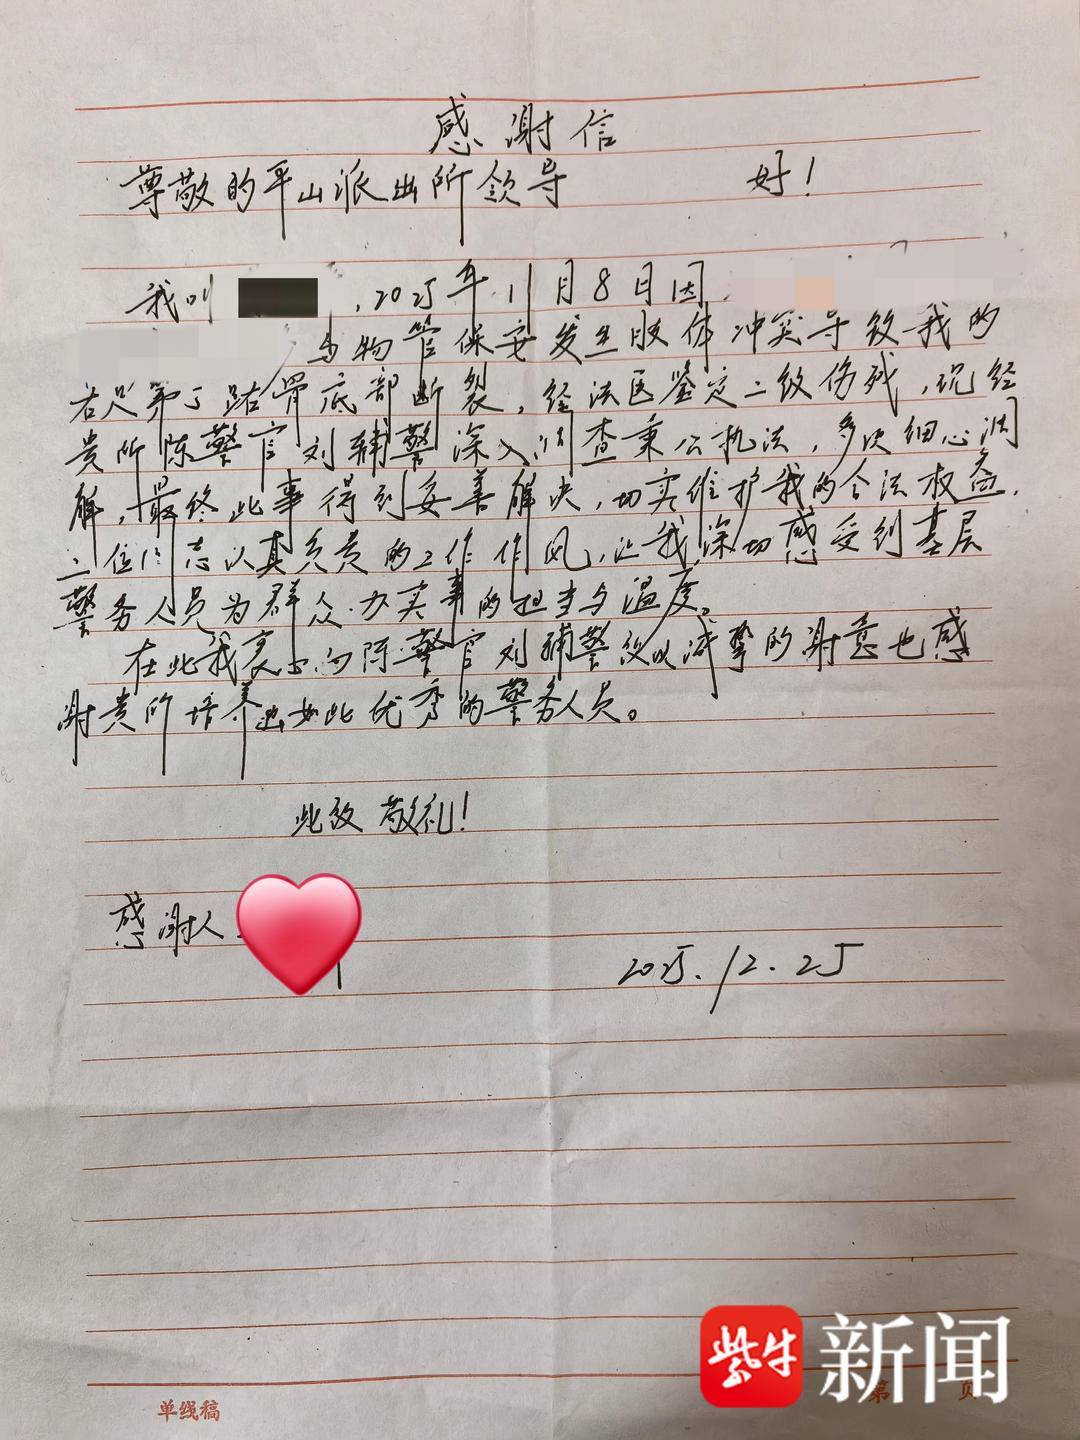 感谢信
尊敬的平山派出所领导 好!
我叫 ,2025年11月8日因
与物管保安发生肢体冲突导致我的
右足第 跖骨底部断裂,经法医鉴定二级伤残,现经
贵所陈警官刘辅警深入调查秉公执法,多次细心调
解,最终此事得到妥善解决,切实维护我的合法权益.
二位同志认真负责的工作作风,让我深切感受到基层
警务人员为群众办实事的担当与温度。
在此我表示向陈警官刘辅警致以诚挚的谢意也感
谢贵所培养出如此优秀的警务人员。
此致 敬礼!
感谢人:
2025.12.25
单线稿
第 页
紫牛 新闻